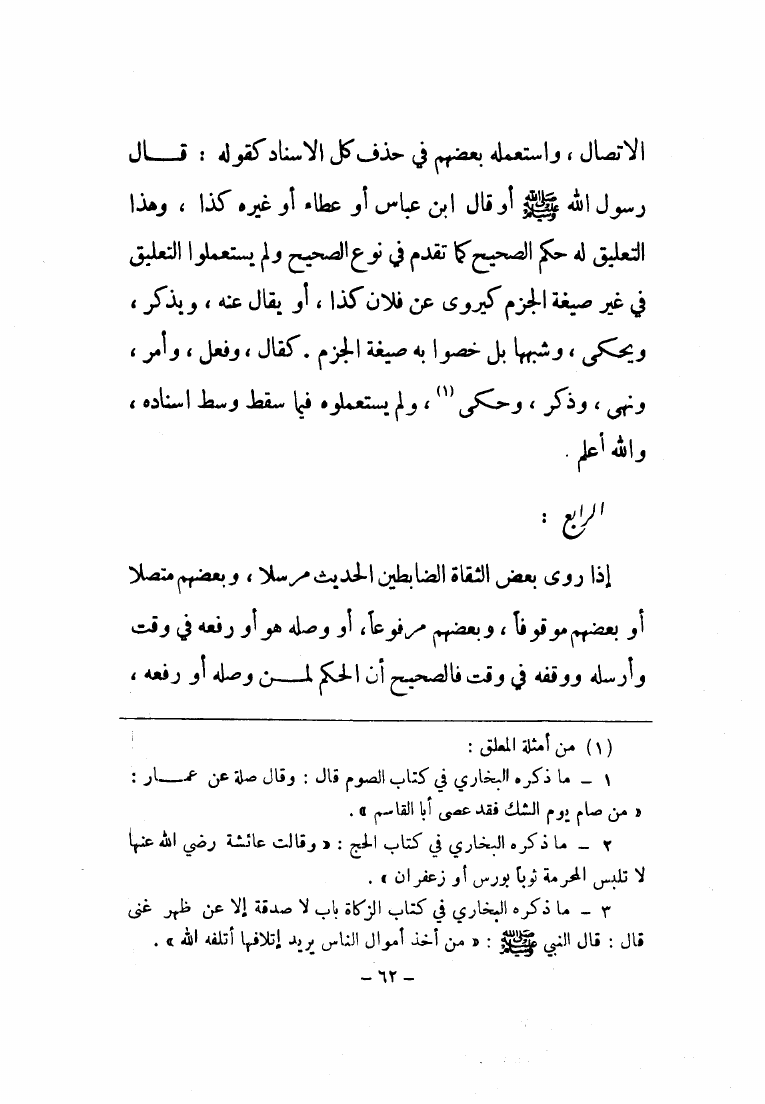 الاتصال ، واستعمله بعضهم في حذف كل الاسناد كقوله : قـــال
رسول الله ﷺ أو قال ابن عباس أو عطاء أو غيره كذا ، وهذا
التعليق له حكم الصحيح كما تقدم في نوع الصحيح ولم يستعملوا التعليق
في غير صيغة الجزم كيروى عن فلان كذا ، أو يقال عنه ، ويذكر ،
ويحكى ، وشبهها بل خصوا به صيغة الجزم . كقال ، وفعل ، وأمر ،
ونهى ، وذكر ، وحكى (١) ، ولم يستعملوه فيما سقط وسط اسناده ،
والله أعلم .
الرابع :
إذا روى بعض الثقاة الضابطين الحديث مرسلا ، وبعضهم متصلا
أو بعضهم موقوفاً ، وبعضهم مرفوعاً ، أو وصله هو أو رفعه في وقت
وأرسله ووقفه في وقت فالصحيح أن الحكم لمـــن وصله أو رفعه ،
(١) من أمثلة المعلق :
١ – ما ذكره البخاري في كتاب الصوم قال : وقال صلة عن عمـــار :
« من صام يوم الشك فقد عصى أبا القاسم » .
٢ – ما ذكره البخاري في كتاب الحج : « وقالت عائشة رضي الله عنها
لا تلبس المحرمة ثوباً بورس أو زعفران » .
٣ – ما ذكره البخاري في كتاب الزكاة باب لا صدقة إلا عن ظهر غنى
قال : قال النبي ﷺ : « من أخذ أموال الناس يريد إتلافها أتلفه الله » .
– ٦٢ –